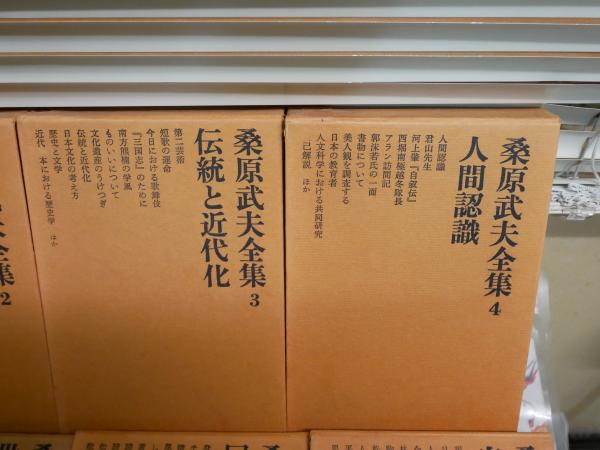 桑原武夫全集 4
人間認識
人間認識
君山先生
河上肇『自叙伝』
西堀南極越冬隊長
アラン訪問記
郭沫若氏の一面
書物について
美人観を調査する
日本の教育者
人文科学における共同研究
己解説 ほか
桑原武夫全集 3
伝統と近代化
第二芸術
短歌の運命
今日における歌舞伎
『三国志』のために
南方熊楠の学風
ものいいについて
文化遺産のうけつぎ
伝統と近代化
日本文化の考え方
歴史と文学
近代 本における歴史学 ほか
2